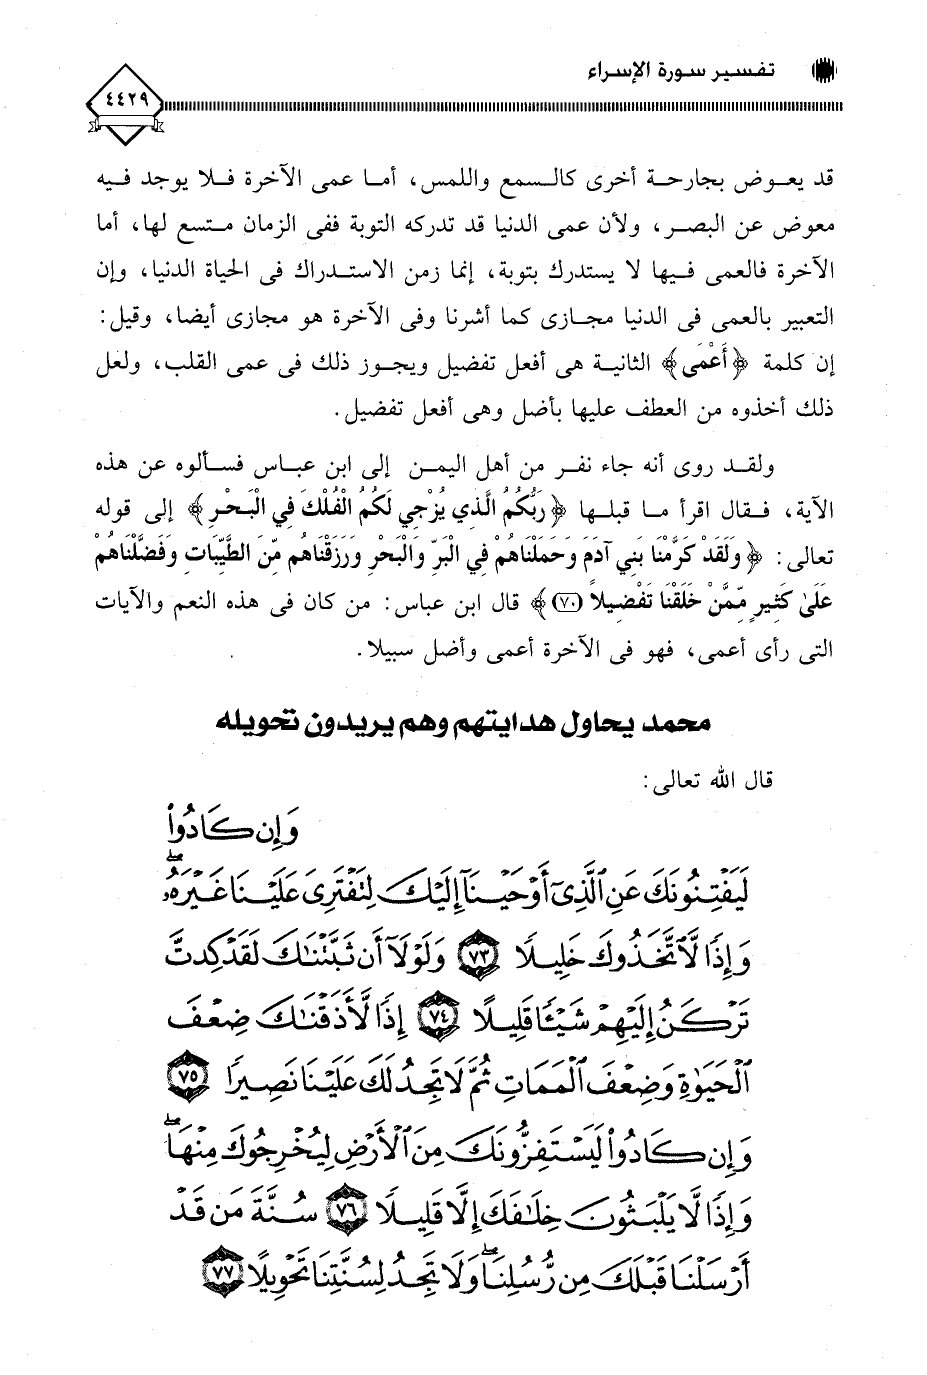 تفسير سورة الإسراء
٤٤٢٩
قد يعوض بجارحة أخرى كالسمع واللمس، أما عمى الآخرة فلا يوجد فيه
معوض عن البصر، ولأن عمى الدنيا قد تدركه التوبة ففى الزمان متسع لها، أما
الآخرة فالعمى فيها لا يستدرك بتوبة، إنما زمن الاستدراك فى الحياة الدنيا، وإن
التعبير بالعمى فى الدنيا مجازى كما أشرنا وفى الآخرة هو مجازى أيضا، وقيل:
إن كلمة ﴿أَعْمَى﴾ الثانية هى أفعل تفضيل ويجوز ذلك فى عمى القلب، ولعل
ذلك أخذوه من العطف عليها بأضل وهى أفعل تفضيل.
ولقد روى أنه جاء نفر من أهل اليمن إلى ابن عباس فسألوه عن هذه
الآية، فقال اقرأ ما قبلها ﴿رَبُّكُمُ الَّذِي يُزْجِي لَكُمُ الْفُلْكَ فِي الْبَحْرِ﴾ إلى قوله
تعالى: ﴿وَلَقَدْ كَرَّمْنَا بَنِي آدَمَ وَحَمَلْنَاهُمْ فِي الْبَرِّ وَالْبَحْرِ وَرَزَقْنَاهُم مِّنَ الطَّيِّبَاتِ وَفَضَّلْنَاهُمْ
عَلَىٰ كَثِيرٍ مِّمَّنْ خَلَقْنَا تَفْضِيلاً (٧٠)﴾ قال ابن عباس: من كان فى هذه النعم والآيات
التى رأى أعمى، فهو فى الآخرة أعمى وأضل سبيلا.
محمد يحاول هدايتهم وهم يريدون تحويله
قال الله تعالى:
وَإِن كَادُوا۟
لَيَفْتِنُونَكَ عَنِ ٱلَّذِىٓ أَوْحَيْنَآ إِلَيْكَ لِتَفْتَرِىَ عَلَيْنَا غَيْرَهُۥۖ
وَإِذًا لَّٱتَّخَذُوكَ خَلِيلًا ٧٣ وَلَوْلَآ أَن ثَبَّتْنَٰكَ لَقَدْ كِدتَّ
تَرْكَنُ إِلَيْهِمْ شَيْـًٔا قَلِيلًا ٧٤ إِذًا لَّأَذَقْنَٰكَ ضِعْفَ
ٱلْحَيَوٰةِ وَضِعْفَ ٱلْمَمَاتِ ثُمَّ لَا تَجِدُ لَكَ عَلَيْنَا نَصِيرًا ٧٥
وَإِن كَادُوا۟ لَيَسْتَفِزُّونَكَ مِنَ ٱلْأَرْضِ لِيُخْرِجُوكَ مِنْهَاۖ
وَإِذًا لَّا يَلْبَثُونَ خِلَٰفَكَ إِلَّا قَلِيلًا ٧٦ سُنَّةَ مَن قَدْ
أَرْسَلْنَا قَبْلَكَ مِن رُّسُلِنَاۖ وَلَا تَجِدُ لِسُنَّتِنَا تَحْوِيلًا ٧٧